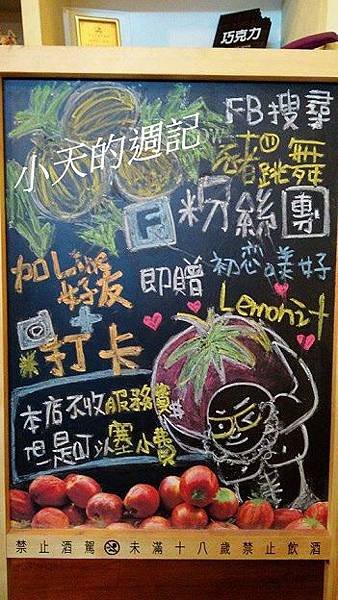 巧克力
小天的週記
FB搜尋
豬跳舞
F 粉絲團
加Line好友
+
打卡
即贈 初戀美好
Lemon汁
本店不收服務費$
但是可以塞小費
禁止酒駕 未滿十八歲禁止飲酒